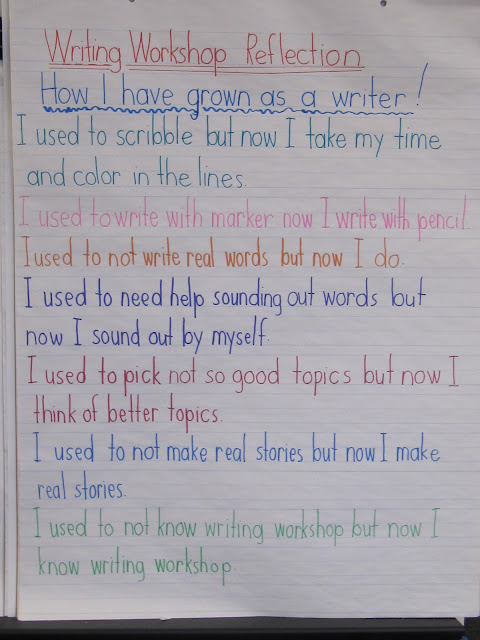 Writing Workshop Reflection
How I have grown as a writer!
I used to scribble but now I take my time
and color in the lines.
I used to write with marker now I write with pencil.
I used to not write real words but now I do.
I used to need help sounding out words but
now I sound out by myself.
I used to pick not so good topics but now I
think of better topics.
I used to not make real stories but now I make
real stories.
I used to not know writing workshop but now I
know writing workshop.